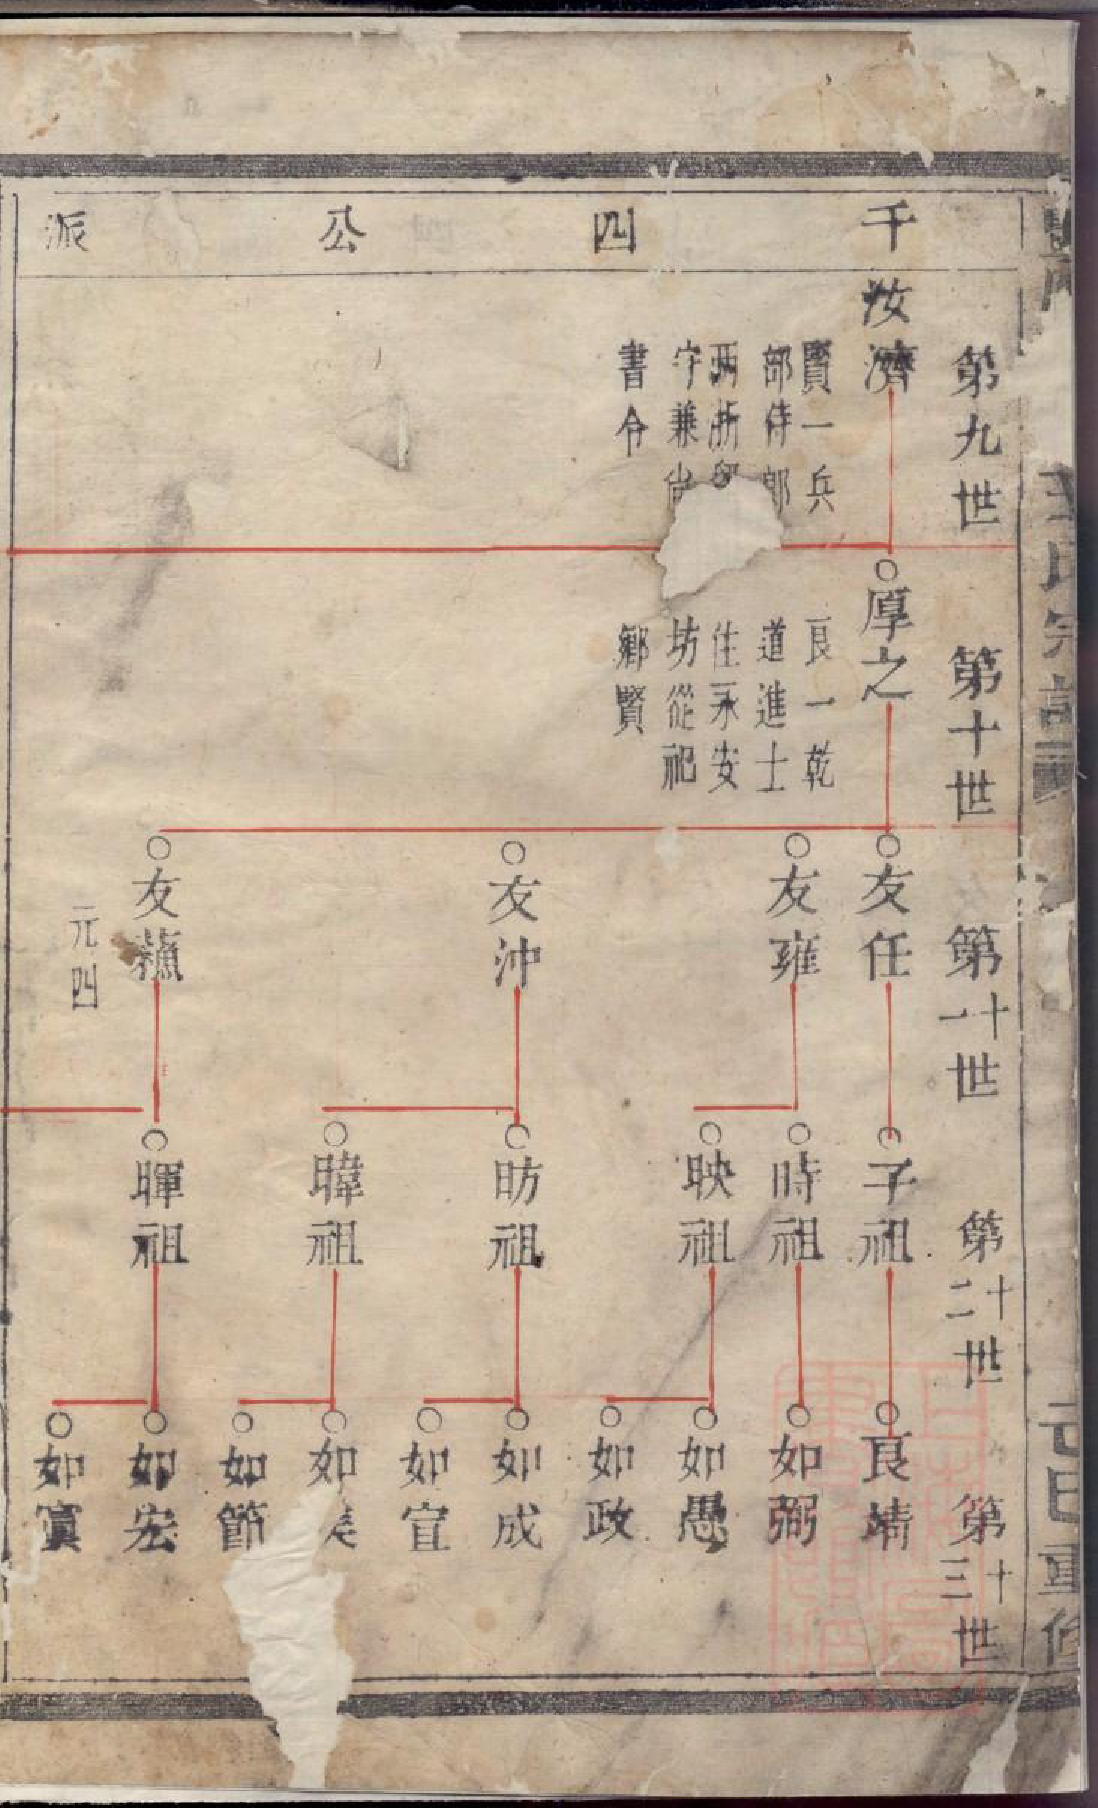 千四公派
第九世
汝濟
賢一兵
部侍郎
兩浙
守兼尚
書令
第十世
厚之
良一乾
道進士
住永安
坊從祀
鄉賢
第十一世
友任
友雍
友沖
友蘓
元四
第十二世
子祖
時祖
映祖
昉祖
暐祖
暉祖
第十三世
良靖
如弼
如愚
如政
如成
如宣
如
如節
如宏
如寘
氏宗譜
重修